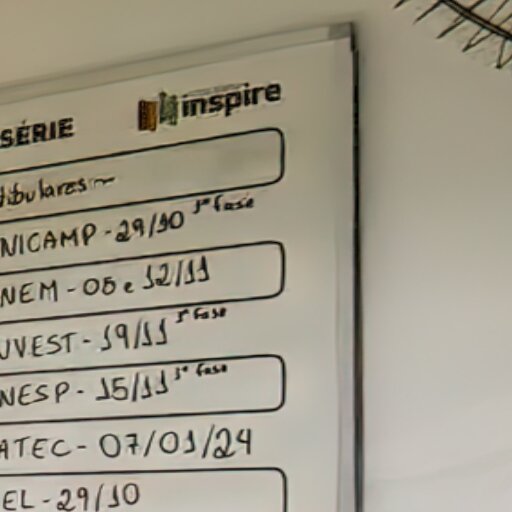 SÉRIE inspire
tibulares~
NICAMP - 29/10 1ª fase
NEM - 05 e 12/11
UVEST - 19/11 1ª fase
NESP - 15/11 1ª fase
ATEC - 07/01/24
EL - 29/10